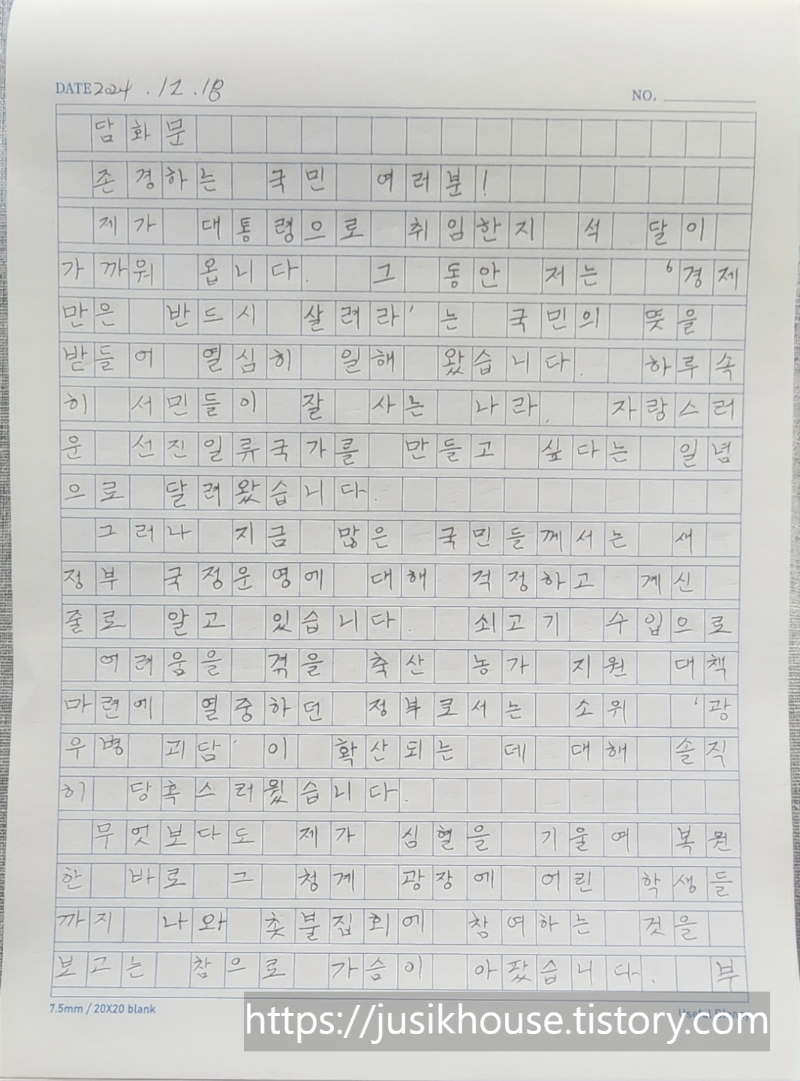 DATE 2024.12.18
NO.
담화문
존경하는 국민 여러분!
제가 대통령으로 취임한지 석 달이
가까워 옵니다. 그 동안 저는 '경제
만은 반드시 살려라'는 국민의 뜻을
받들어 열심히 일해 왔습니다. 하루속
히 서민들이 잘 사는 나라, 자랑스러
운 선진일류국가를 만들고 싶다는 일념
으로 달려왔습니다.
그러나 지금 많은 국민들께서는 새
정부 국정운영에 대해 걱정하고 계신
줄로 알고 있습니다. 쇠고기 수입으로
어려움을 겪을 축산 농가 지원 대책
마련에 열중하던 정부로서는 소위 '광
우병 괴담'이 확산되는 데 대해 솔직
히 당혹스러웠습니다.
무엇보다도 제가 심혈을 기울여 복원
한 바로 그 청계 광장에 어린 학생들
까지 나와 촛불집회에 참여하는 것을
보고는 참으로 가슴이 아팠습니다. 부
7.5mm / 20X20 blank
https://jusikhouse.tistory.com